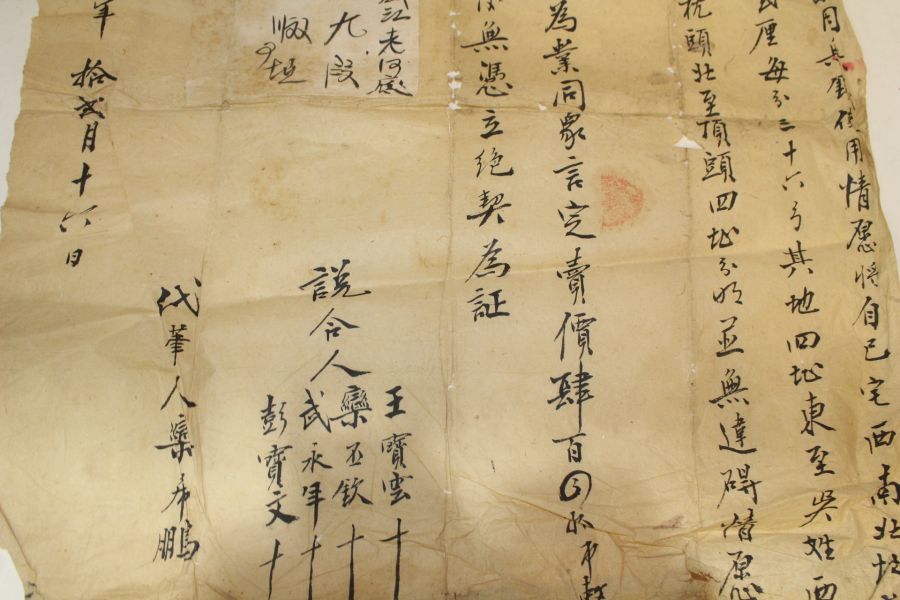 使用情愿將自己宅西南北
厘每分二十六弓其地四址東至吳姓西
枕頭北至頂頭四址分明並無違碍情愿
為業同眾言定賣價肆百
無憑立绝契為証
九段
說合人
王寶雲十
欒丕欽十
武永年十
彭寶文十
代筆人欒希鵬
年拾弍月十六日